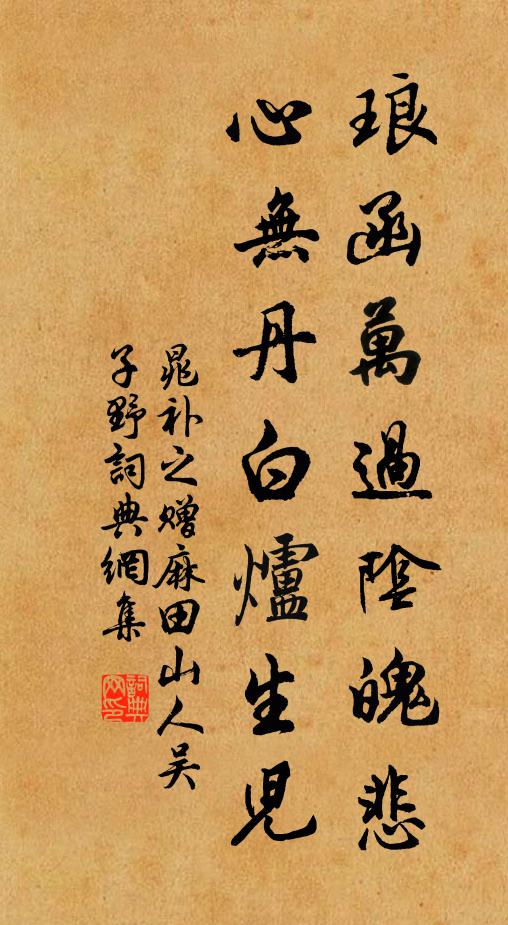 琅函萬過陰魄悲
心無丹白爐生兒
晁补之赠麻田山人吴
子野詞典網集
詞典網印